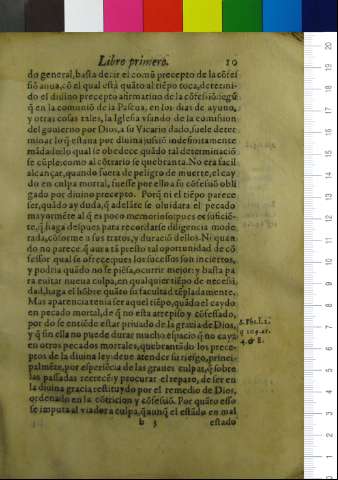 Libro primero. 10
do general, basta dezir el comũ precepto de la cõfes
siõ anua, cõ el qual està quãto al tiẽpo toca, determi-
do el diuino precepto afirmatiuo de la cõfessiõ: segũ
q̃ en la comuniõ de la Pascua, en los dias de ayuno,
y otras cosas tales, la Iglesia vsando de la comission
del gouierno por Dios, a su Vicario dado, suele deter
minar lo q̃ estaua por diuina jussiõ indefinitamente
mãdado: lo qual se obedece quãdo tal determinaciõ
se cũple: como al cõtrario se quebranta. No era facil
alcançar, quando fuera de peligro de muerte, el cay
do en culpa mortal, fuesse por ello a su cõfessiõ obli
gado por diuino precepto. Porq̃ ni el tiẽpo parece
ser, quãdo ay duda, q̃ adelãte se oluidara el pecado
mayormẽte al q̃ es poco memorioso: pues es suficiẽ-
te, q̃ haga despues para recordarse diligencia mode
rada, cõforme a sus tratos, y duraciõ dellos. Ni quan
do no parece q̃ aura tã presto tal oportunidad de cõ
fessor qual se ofrece: pues los successos son inciertos,
y podria quãdo no se piẽsa, ocurrir mejor: y basta pa
ra euitar nueua culpa, en qualquier tiẽpo de necessi
dad, haga el hõbre quãto su facultad tẽpladamente.
Mas aparencia tenia ser aquel tiẽpo, quãdo el caydo
en pecado mortal, de q̃ no esta arrepiso y cõfessado,
por do se entiẽde estar priuado de la gracia de Dios,
y q̃ sin ella no puede durar mucho espacio q̃ no caya
en otros pecados mortales, quebrantãdo los prece-
ptos de la diuina ley: deue atender su riesgo, princi-
palmẽte, por esperiẽcia de las graues culpas, q̃ sobre
las passadas recrecẽ: y procurar el reparo, de ser en
la diuina gracia restituydo por el remedio de Dios,
ordenado en la cõtricion y cõfessiõ. Por quãto esso
se imputa al viador a culpa, q̃ aunq̃ el estãdo en mal
b 3 estado